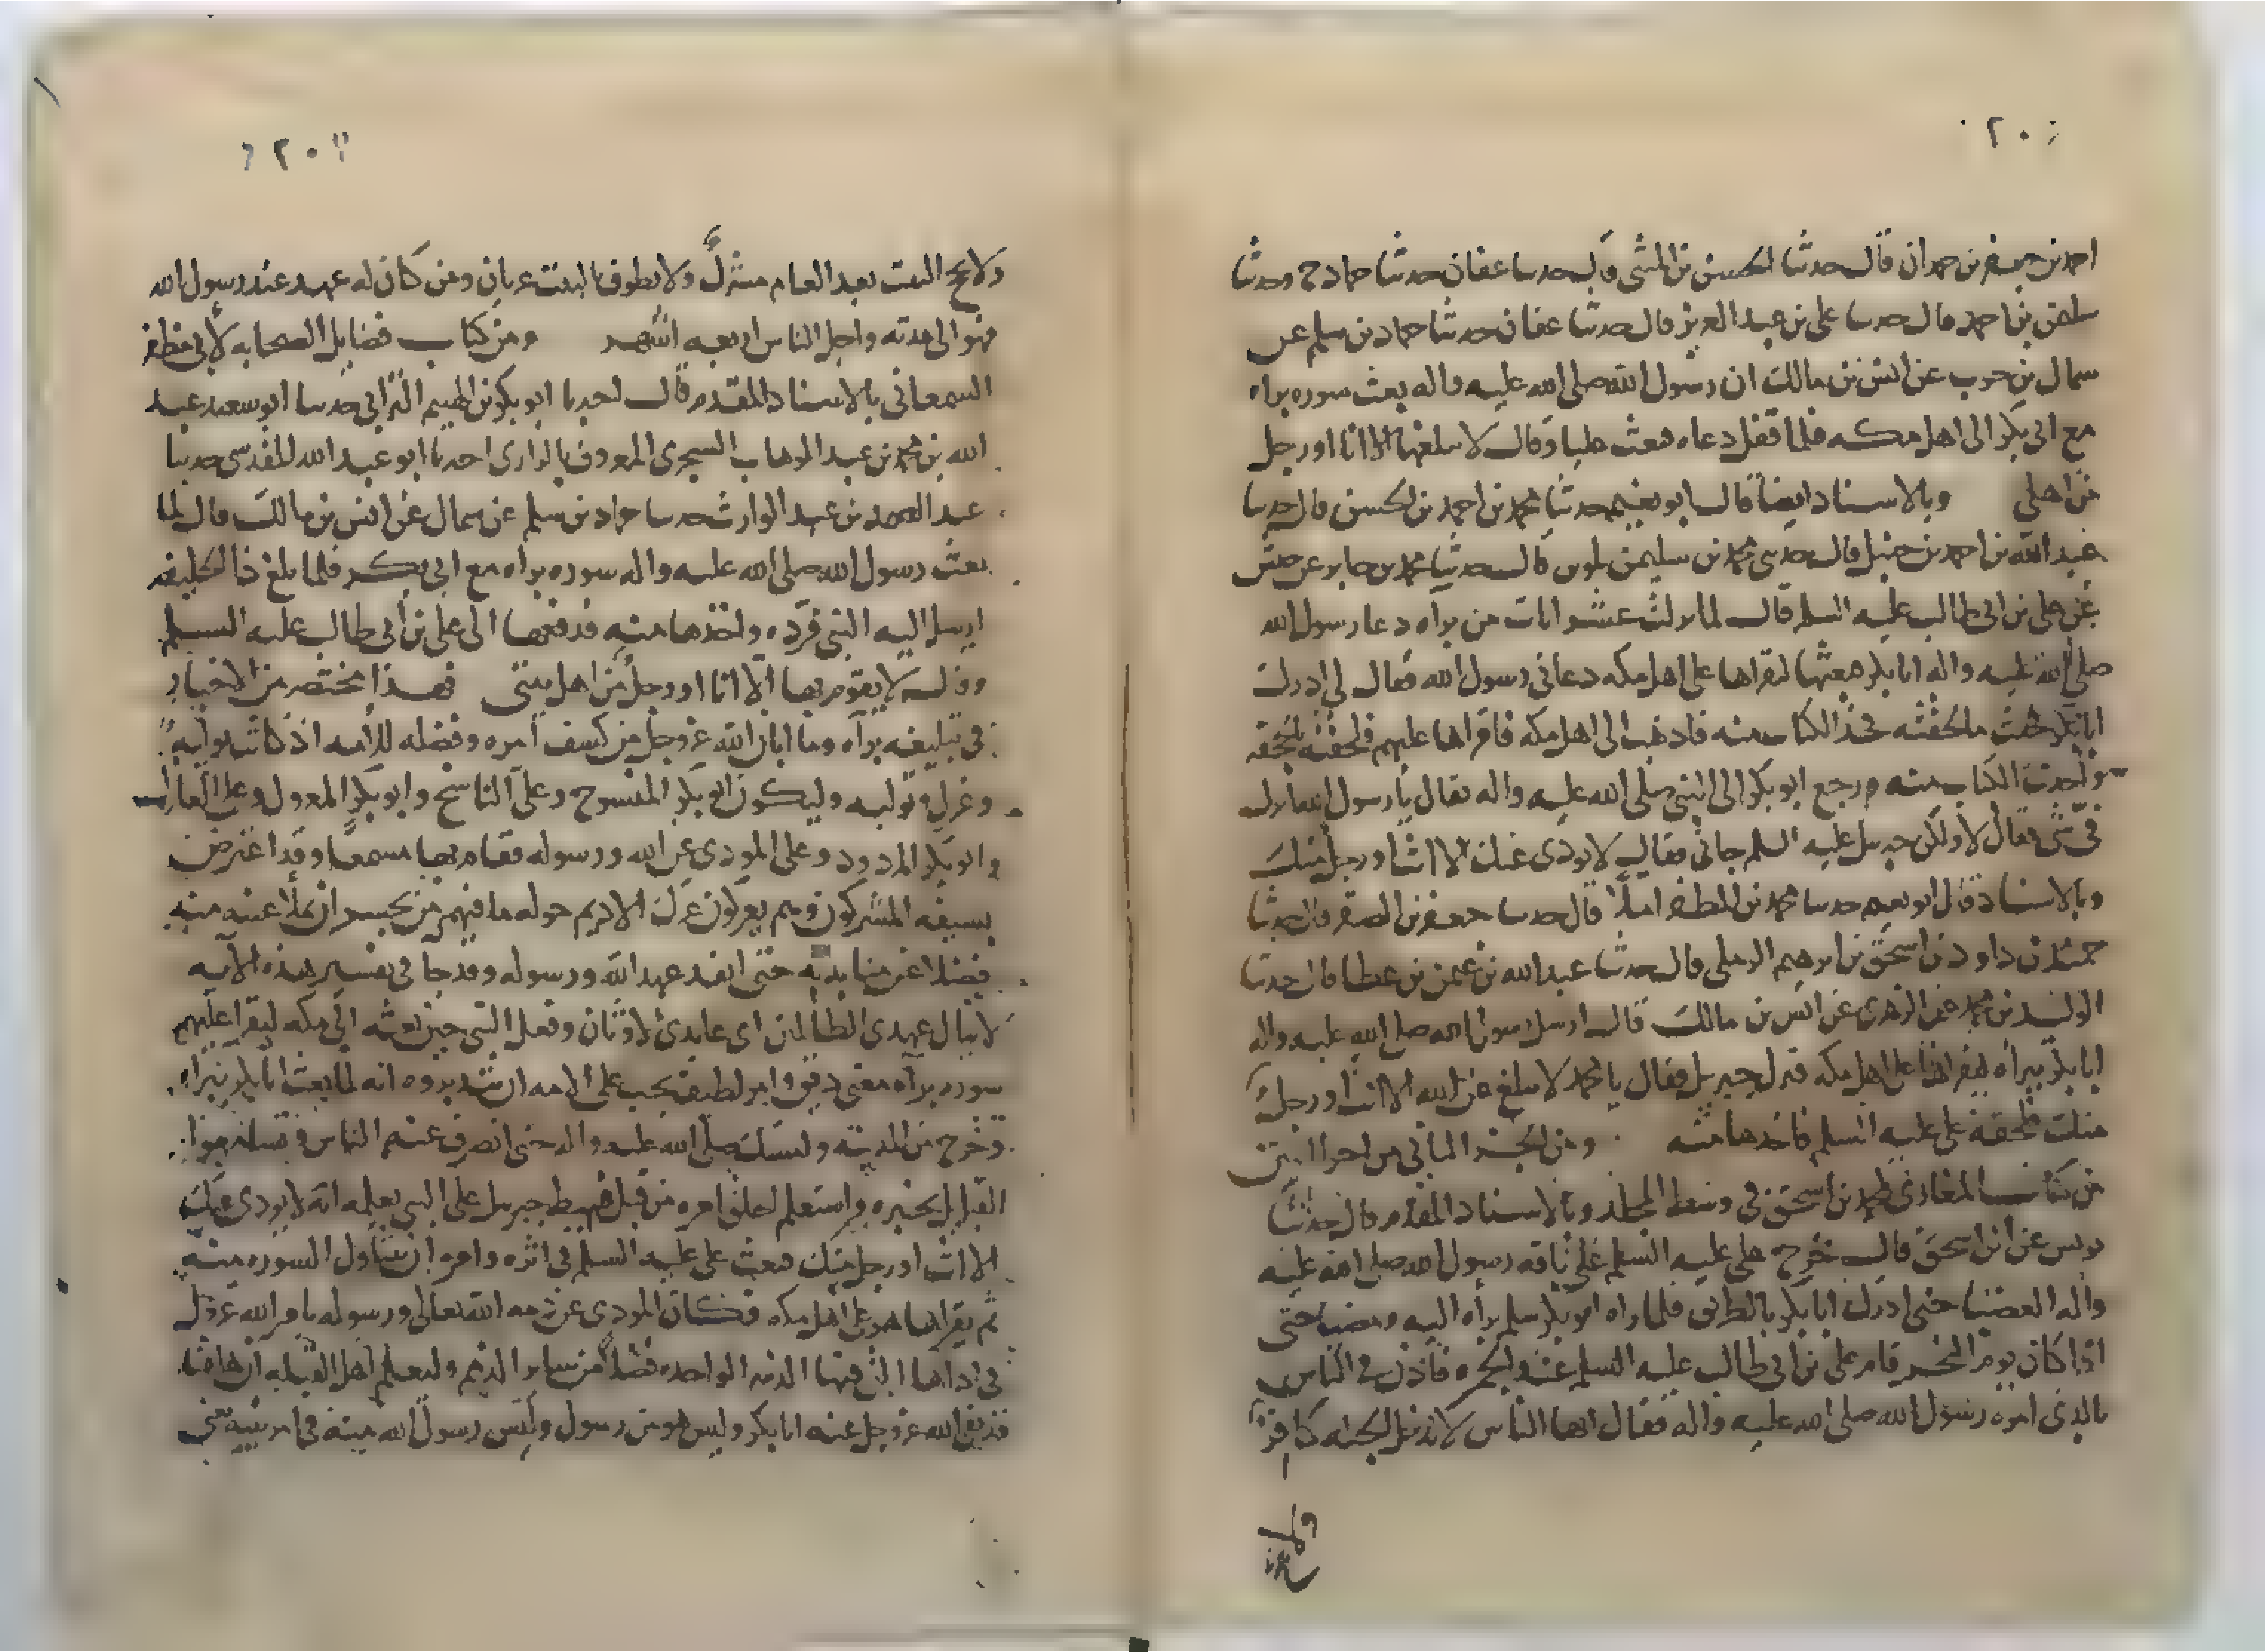 احمد بن جعفر بن حمدان قال حدثنا الحسن بن المثنى قال حدثنا عفان حدثنا حماد ح وحدثنا
سليمن بن احمد قال حدثنا على بن عبد العزيز قال حدثنا عفان حدثنا حماد بن سلم عن
سمال بن حرب عن انس بن مالك ان رسول الله صلى الله عليه واله بعث سوره براه
مع ابى بكر الى اهل مكه فلما قفل دعاه فبعث عليا وقال لا يبلغها الا انا او رجل
من اهلى وبالاسناد ايضا قال ابو نعيم حدثنا محمد بن احمد بن الحسن قال حدثنا
عبد الله بن احمد بن حنبل قال حدثنى محمد بن سليمن لوين قال حدثنا محمد بن جابر عن حنش
عن على بن ابى طالب عليه السلم قال لما نزلت عشر ايات من براه دعا رسول الله
صلى الله عليه واله ابا بكر فبعثها ليقراها على اهل مكه دعانى رسول الله فقال لى ادرك
ابا بكر حيث ما لحقته فخذ الكتاب منه فاذهب الى اهل مكه فاقراها عليهم فلحقته بالجحفه
واخذت الكتاب منه ورجع ابو بكر الى النبى صلى الله عليه واله فقال يا رسول الله نزل
فى شى فقال لا ولكن جبريل عليه السلم جانى فقال لا يودى عنك الا انت او رجل منك
وبالاسناد قال ابو نعيم حدثنا محمد بن المظفر املا قال حدثنا جعفر بن الصقر قال حدثنا
بن داود بن اسحق بن ابرهيم الرملى قال حدثنا عبد الله بن عثمن بن عطا قال حدثنا
الوليد بن محمد عن الزهرى عن انس بن مالك قال ارسل رسول الله صلى الله عليه واله
ابا بكر ببراه ليقراها على اهل مكه فنزل جبريل فقال يا محمد لا يبلغ عن الله الا انت او رجل
منك فلحقه على عليه السلم فاخذها منه ومن الجز الثانى من
من كتاب المغازى لمحمد بن اسحق فى وسط المجلد وبالاسناد المقدم قال حدثنا
يونس عن ابن اسحق قال خرج على عليه السلم على ناقه رسول الله صلى الله عليه
واله العضبا حتى ادرك ابا بكر بالطريق فلما راه ابو بكر سلم براه اليه ومضيا حتى
اذا كان يوم النحر قام على بن ابى طالب عليه السلم عند الجمره فاذن فى الناس
بالذى امره رسول الله صلى الله عليه واله فقال ايها الناس لا يدخل الجنه كافر
ولا يحج
ولا يحج البيت بعد العام مشرك ولا يطوف بالبيت عريان ومن كان له عهد عند رسول الله
فهو الى مدته واجل الناس اربعه اشهر ومن كتاب فضايل الصحابه لابى مظفر
السمعانى بالاسناد المقدم قال اخبرنا ابو بكر بن الهيثم الترابى حدثنا ابو سعيد عبد
الله بن محمد بن عبد الوهاب السجزى المعروف بالرازى اخبرنا ابو عبد الله المقدسى حدثنا
عبد الصمد بن عبد الوارث حدثنا حماد بن سلم عن سمال عن انس بن مالك قال لما
بعث رسول الله صلى الله عليه واله سوره براه مع ابى بكر فلما بلغ ذا الحليفه
ارسل اليه النبى فرده واخذها منه فدفعها الى على بن ابى طالب عليه السلم
وقال لا يقوم بها الا انا او رجل من اهل بيتى فهذا مختصر من الاخبار
فى تبليغه براه وما ابان الله عز وجل من كشف امره وفضله للامه اذ كانت بولايه
وعزل وتوليه وليكون ابو بكر المنسوخ وعلى الناسخ وابو بكر المعزول وعلى
وابو بكر المردود وعلى المودى عن الله ورسوله فقام بها مسمعا وقد اعترض
بسيفه المشركون وهم يعركون عرك الاديم حوله ما فيهم من يجسر ان يملا عينه منه
فضلا عن منابذته حتى انفذ عهد الله ورسوله وقد جا فى تفسير هذه الايه
لا ينال عهدى الظالمين اى عابدى الاوثان وفعل النبى حين بعثه الى مكه ليقرا عليهم
سوره براه معنى دقيق وامر لطيف يجب على الامه ان تتدبروه انه لما بعث ابا بكر ببراه
وخرج من المدينه وامسك صلى الله عليه واله حتى انصرف عنه الناس
القبايل بخبره واستعلم الخلق امره من قبل فهبط جبريل على النبى يعلمه انه لا يودى عنك
الا انت او رجل منك فبعث على عليه السلم فى اثره وامره ان يتناول السوره منه
ثم يقراها هو على اهل مكه فكان المودى عن ذمه الله تعالى ورسوله بامر الله عز وجل
فى اداها التى فيها الذمه الواحده فضلا من ساير الذمم وليعلم اهل القبله ان هاهنا
قد نفى الله عز وجل عنه ابا بكر وليس هو من رسول وليس رسول الله منه فى امر